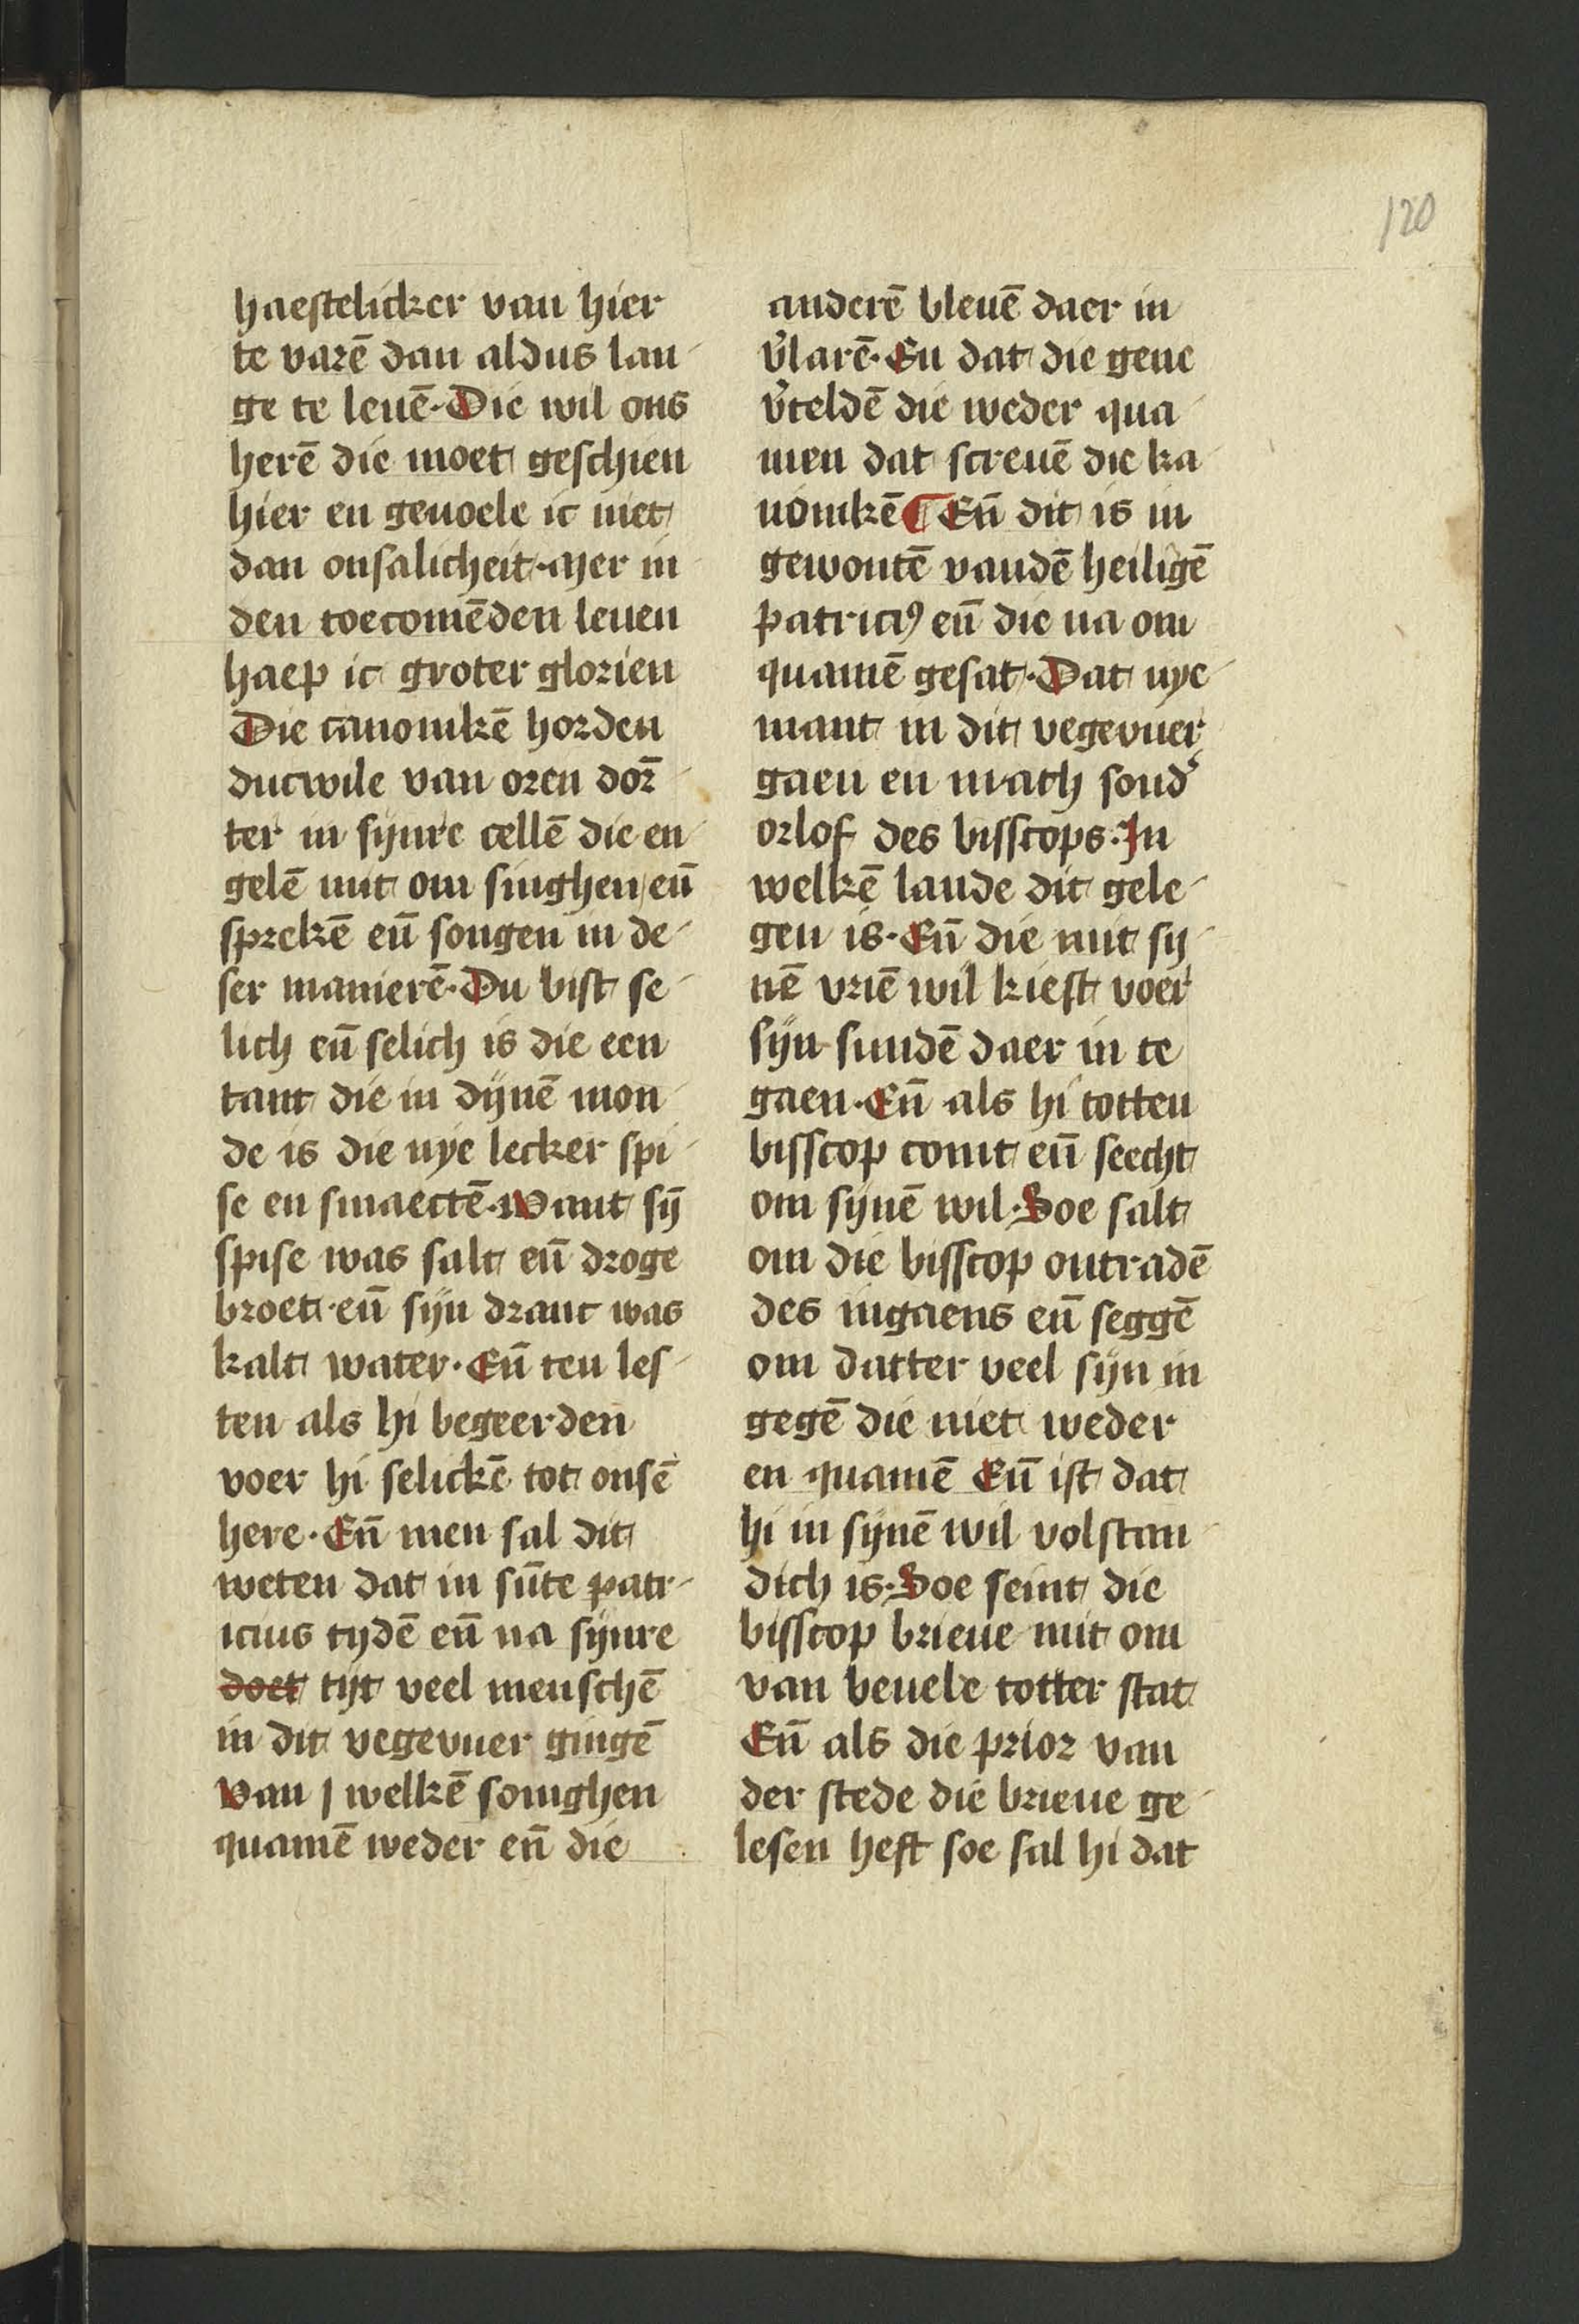 120
haestelicker van hier
te varē dan aldus lan-
ge te leuē. Die wil ons
herē die moet geschien
hier en geuoele ic niet
dan onsalicheit. Mer in
den toecomēden leuen
haep ic groter glorien
Die canonikē horden
ducwile van oren dor-
ter in sijnre cellē die en-
gelē mit om singhen eñ
sprekē eñ songen in de-
ser manierē. Du bist se-
lich eñ selich is die een
tant die in dijnē mon-
de is die nye lecker spi-
se en smaectē. Want sȳ
spise was salt eñ droge
broet. eñ sijn dranc was
kalt water. Eñ ten les-
ten als hi begeerden
voer hi selickē tot onsē
here. Eñ men sal dit
weten dat in sūte patr-
icius tydē eñ na sijnre
doet tijt veel menschē
in dit vegevuer gingē
Van j welkē somghen
quamē weder eñ die
anderē bleuē daer in
v̓larē. En dat die gene
v̓teldē die weder qua-
men dat screuē die ka-
nonikē ¶ Eñ dit is in
gewontē vandē heiligē
patriciꝰ eñ die na om
quamē gesat. Dat nye-
mant in dit vegevuer
gaen en mach sond̓
orlof des bisscops. In
welkē lande dit gele-
gen is. Eñ die mit sy-
nē vriē wil kiest voer
sijn sundē daer in te
gaen. Eñ als hi totten
bisscop comt eñ seecht
om sijnē wil. Soe salt
om die bisscop ontradē
des ingaens eñ seggē
om datter veel sijn in
gegē die niet weder
en quamē Eñ ist dat
hi in sijnē wil volstan-
dich is. Soe seint die
bisscop brieue mit om
van beuele totter stat
Eñ als die prior van
der stede die brieue ge-
lesen heft soe sal hi dat